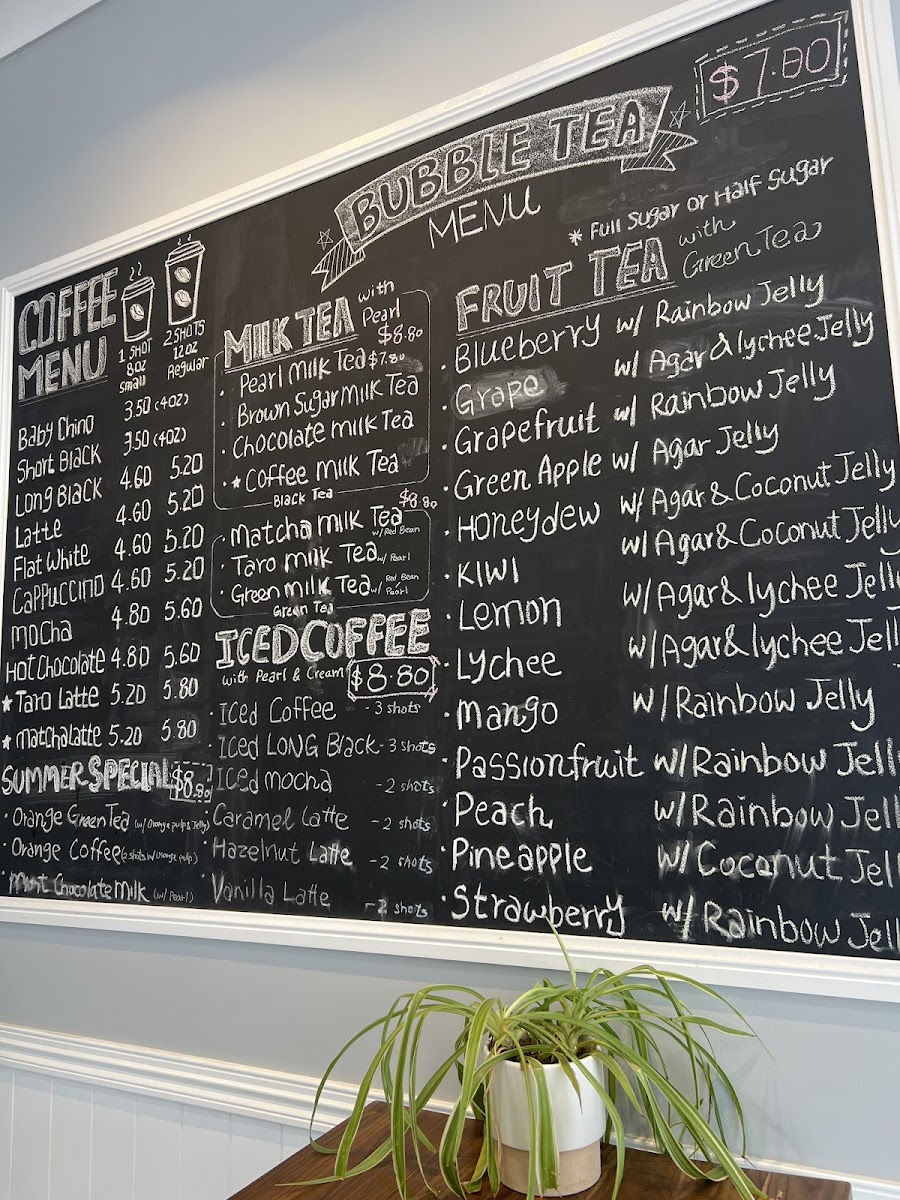 $7.80
BUBBLE TEA
MENU
* Full Sugar or Half Sugar
COFFEE
MENU
1 SHOT 8oz Small
2 SHOTS 12oz Regular
Baby Chino 3.50 (4oz)
Short Black 3.50 (4oz)
Long Black 4.60 5.20
Latte 4.60 5.20
Flat White 4.60 5.20
Cappuccino 4.60 5.20
Mocha 4.80 5.60
Hot Chocolate 4.80 5.60
★ Taro Latte 5.20 5.80
★ matchalatte 5.20 5.80
SUMMER SPECIAL $8.80
· Orange Green Tea (w/ Orange pulp & Jelly)
· Orange Coffee (2 shots w/ orange pulp)
· Mint Chocolate Milk (w/ Pearl)
MILK TEA with Pearl
$8.80
· Pearl Milk Tea $7.80
· Brown Sugar Milk Tea
· Chocolate Milk Tea
· ★ Coffee Milk Tea
Black Tea
$8.80
· Matcha Milk Tea w/ Red Bean
· Taro Milk Tea w/ Pearl
· Green Milk Tea w/ Red Bean Pearl
Green Tea
ICED COFFEE
with Pearl & Cream $8.80
· Iced Coffee - 3 shots
· Iced LONG Black - 3 shots
· Iced mocha - 2 shots
· Caramel Latte - 2 shots
· Hazelnut Latte - 2 shots
· Vanilla Latte - 2 shots
FRUIT TEA with Green Tea
· Blueberry w/ Rainbow Jelly
· Grape w/ Agar & lychee Jelly
· Grapefruit w/ Rainbow Jelly
· Green Apple w/ Agar Jelly
· Honeydew w/ Agar & Coconut Jelly
· KIWI w/ Agar & Coconut Jelly
· Lemon w/ Agar & lychee Jelly
· Lychee w/ Agar & lychee Jell
· Mango w/ Rainbow Jelly
· Passionfruit w/ Rainbow Jell
· Peach w/ Rainbow Jell
· Pineapple w/ Coconut Jell
· Strawberry w/ Rainbow Jell